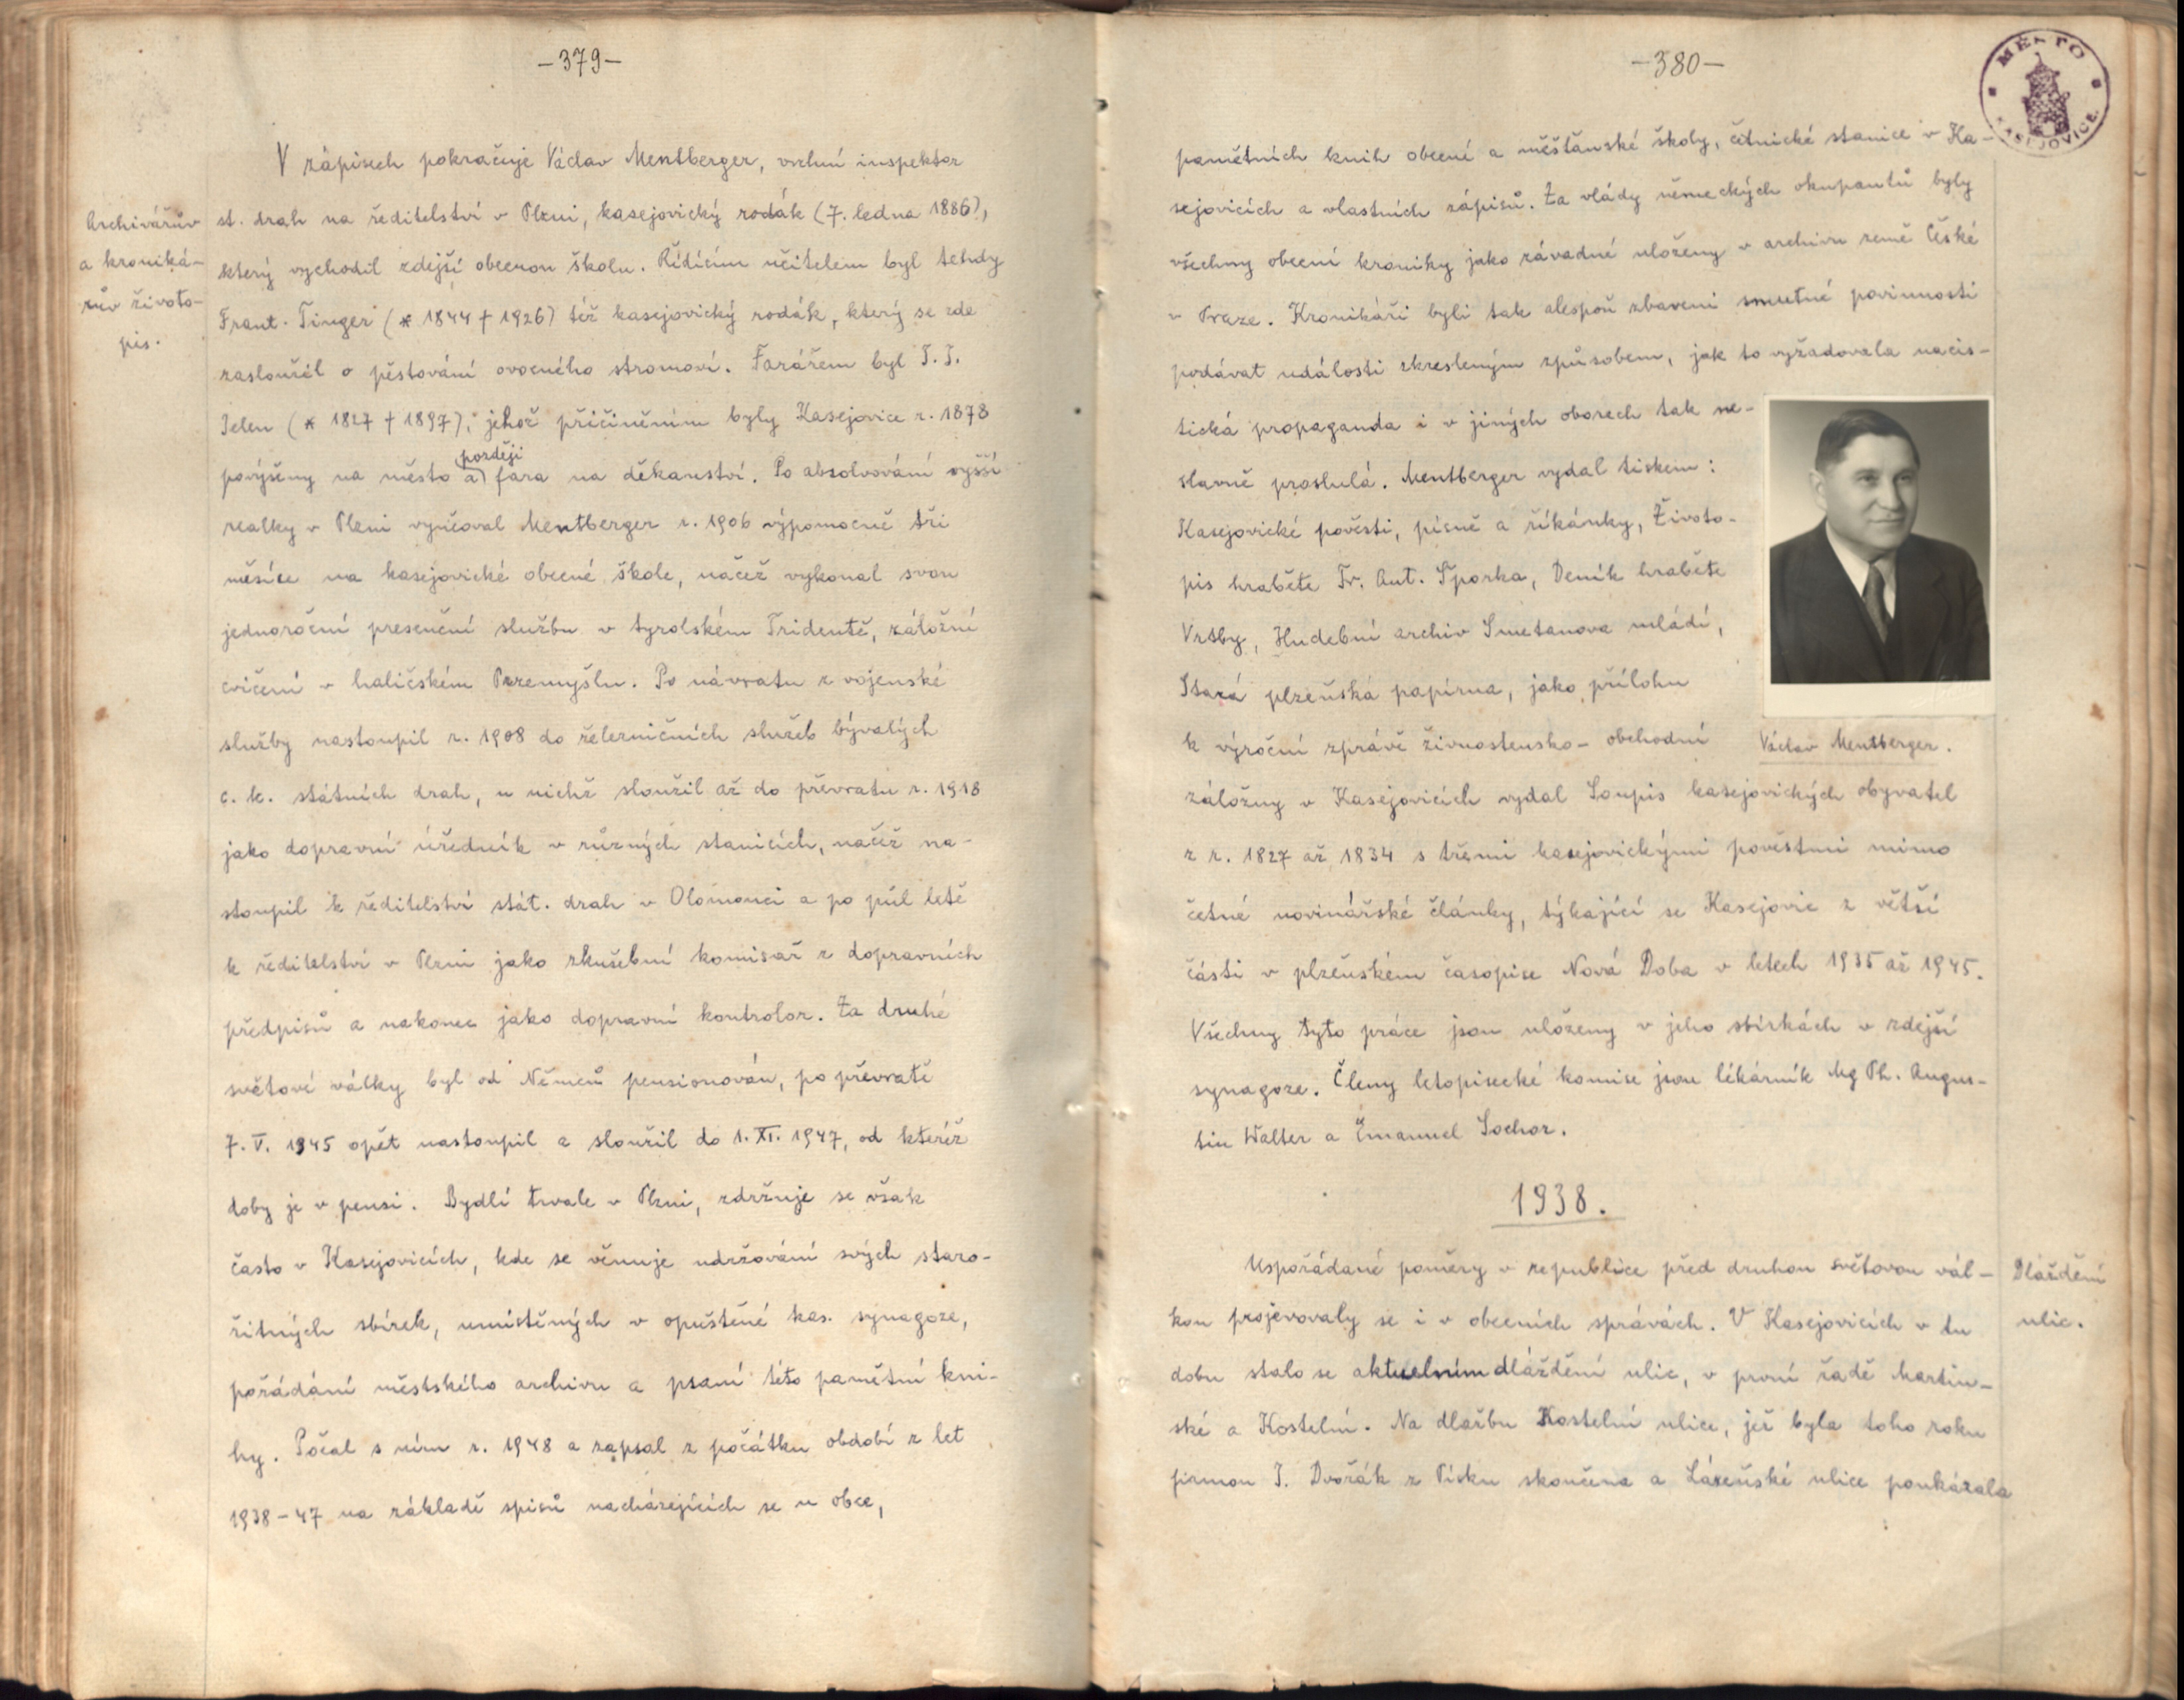 -379-
V zápisech pokračuje Václav Mentberger, vrchní inspektor
Archivářův
a kroniká-
rův životo-
pis.
st. drah na ředitelství v Plzni, kasejovický rodák (7. ledna 1886),
který vychodil zdejší obecnou školu. Řídícím učitelem byl tehdy
Frant. Tinger (* 1844 † 1926) též kasejovický rodák, který se zde
zasloužil o pěstování ovocného stromoví. Farářem byl J. J.
Jelen (* 1827 † 1897), jehož přičiněním byly Kasejovice r. 1878
později
povýšeny na město a fara na děkanství. Po absolvování vyšší
realky v Plzni vyučoval Mentberger r. 1906 výpomocně tři
měsíce na kasejovické obecné škole, načež vykonal svou
jednoroční presenční službu v tyrolském Tridentě, záložní
cvičení v haličském Przemyšlu. Po návratu z vojenské
služby nastoupil r. 1908 do železničních služeb bývalých
c. k. státních drah, u nichž sloužil až do převratu r. 1918
jako dopravní úředník v různých stanicích, načež na-
stoupil k ředitelství stát. drah v Olomouci a po půl letě
k ředitelství v Plzni jako zkušební komisař z dopravních
předpisů a nakonec jako dopravní kontrolor. Za druhé
světové války byl od Němců pensionován, po převratě
7. V. 1945 opět nastoupil a sloužil do 1. XI. 1947, od kteréž
doby je v pensi. Bydlí trvale v Plzni, zdržuje se však
často v Kasejovicích, kde se věnuje udržování svých staro-
žitných sbírek, umístěných v opuštěné kas. synagoze,
pořádání městského archivu a psaní této pamětní kni-
hy. Počal s ním r. 1948 a zapsal z počátku období z let
1938-47 na základě spisů nacházejících se u obce,
-380-
MĚSTO
KASEJOVICE
pamětních knih obecné a měšťanské školy, četnické stanice v Ka-
sejovicích a vlastních zápisů. Za vlády německých okupantů byly
všechny obecní kroniky jako závadné uloženy v archivu země České
v Praze. Kronikáři byli tak alespoň zbaveni smutné povinnosti
podávat události zkresleným způsobem, jak to vyžadovala nacis-
tická propaganda i v jiných oborech tak ne-
slavně proslulá. Mentberger vydal tiskem:
Kasejovické pověsti, písně a říkánky, Životo-
pis hraběte Fr. Ant. Šporka, Deník hraběte
Vrtby, Hudební archiv Smetanova mládí,
Stará plzeňská papírna, jako přílohu
k výroční zprávě živnostensko-obchodní
Václav Mentberger.
záložny v Kasejovicích vydal Soupis kasejovických obyvatel
z r. 1827 až 1834 s třemi kasejovickými pověstmi mimo
četné novinářské články, týkající se Kasejovic z větší
části v plzeňském časopise Nová Doba v letech 1935 až 1945.
Všechny tyto práce jsou uloženy v jeho sbírkách v zdejší
synagoze. Členy letopisecké komise jsou lékárník Mg Ph. Augus-
tin Walter a Emanuel Sochor.
1938.
Uspořádané poměry v republice před druhou světovou vál-
Dláždění
ulic.
kou projevovaly se i v obecních správách. V Kasejovicích v tu
dobu stalo se aktuelním dláždění ulic, v první řadě Martin-
ské a Kostelní. Na dlažbu Kostelní ulice, jež byla toho roku
firmou J. Dvořák z Písku skončena a Lázeňské ulice poukázala